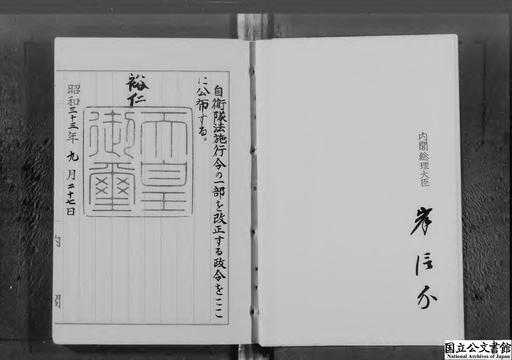 自衛隊法施行令の一部を改正する政令をここ
に公布する。
裕仁
天皇御璽
昭和三十三年九月二十七日
内閣
内閣総理大臣
岸信介
国立公文書館
National Archives of Japan